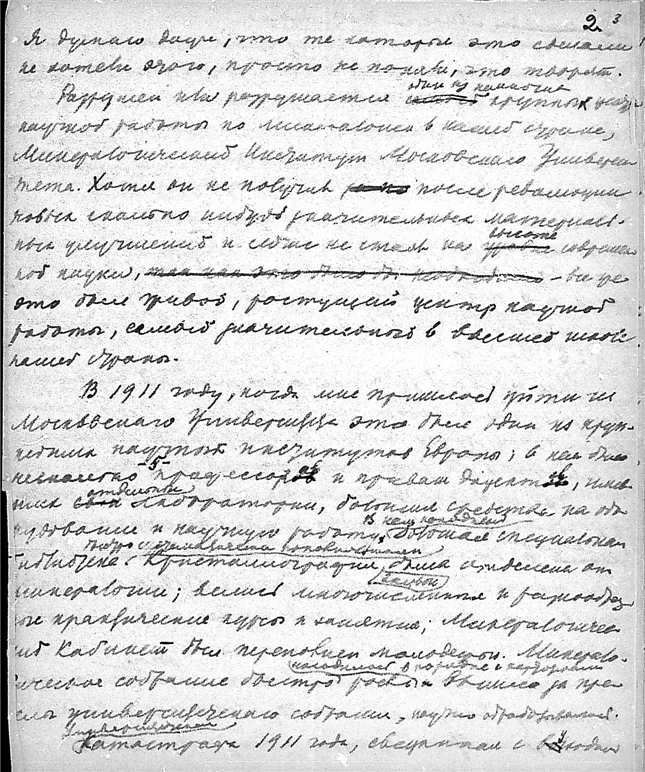 2 3
Я думаю даже, что те которые это сделали
не хотели этого, просто не поняли, что творят.
один из немногих
Разрушен или разрушается крупных
научной работы по минералогии в нашей стране,
Минералогический Институт Московского Универси
тета. Хотя он не получил после революции
новых сколько нибудь значительных материаль-
высоте
ных улучшений и сейчас не стоял на уровне современ
ной науки, так как это было бы необходимо - все же
это был живой, растущий центр научной
работы, самый значительный в высшей школе
нашей страны.
В 1911 году, когда мне пришлось уйти из
Московского Университета это был один из круп-
нейших научных институтов Европы; в нем было
несколько -5- профессоров и приват доцентов, имев
отдельные
ших свои лаборатории, большие средства на обо
рудование и научную работу. Большая специальная
В нем находился
быстро
библиотека. Кристаллография была отделена от
минералогии; велись многочисленные и разнообраз
ные практические курсы и занятия; Минералогичес
кий Кабинет был переполнен молодежью. Минерало-
находилось в порядке и
гическое собрание быстро росло и вышло за пре
делы университетского собрания, научно обрабатывалось.
университетская
Катастрофа 1911 года, связанная с